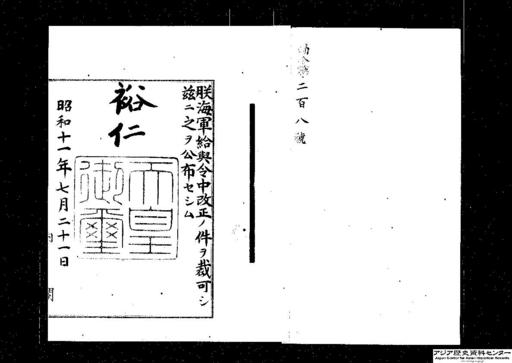 勅令第二百八號
朕海軍給與令中改正ノ件ヲ裁可シ
茲ニ之ヲ公布セシム
裕仁
天皇御璽
昭和十一年七月二十一日
アジア歴史資料センター
Japan Center for Asian Historical Records